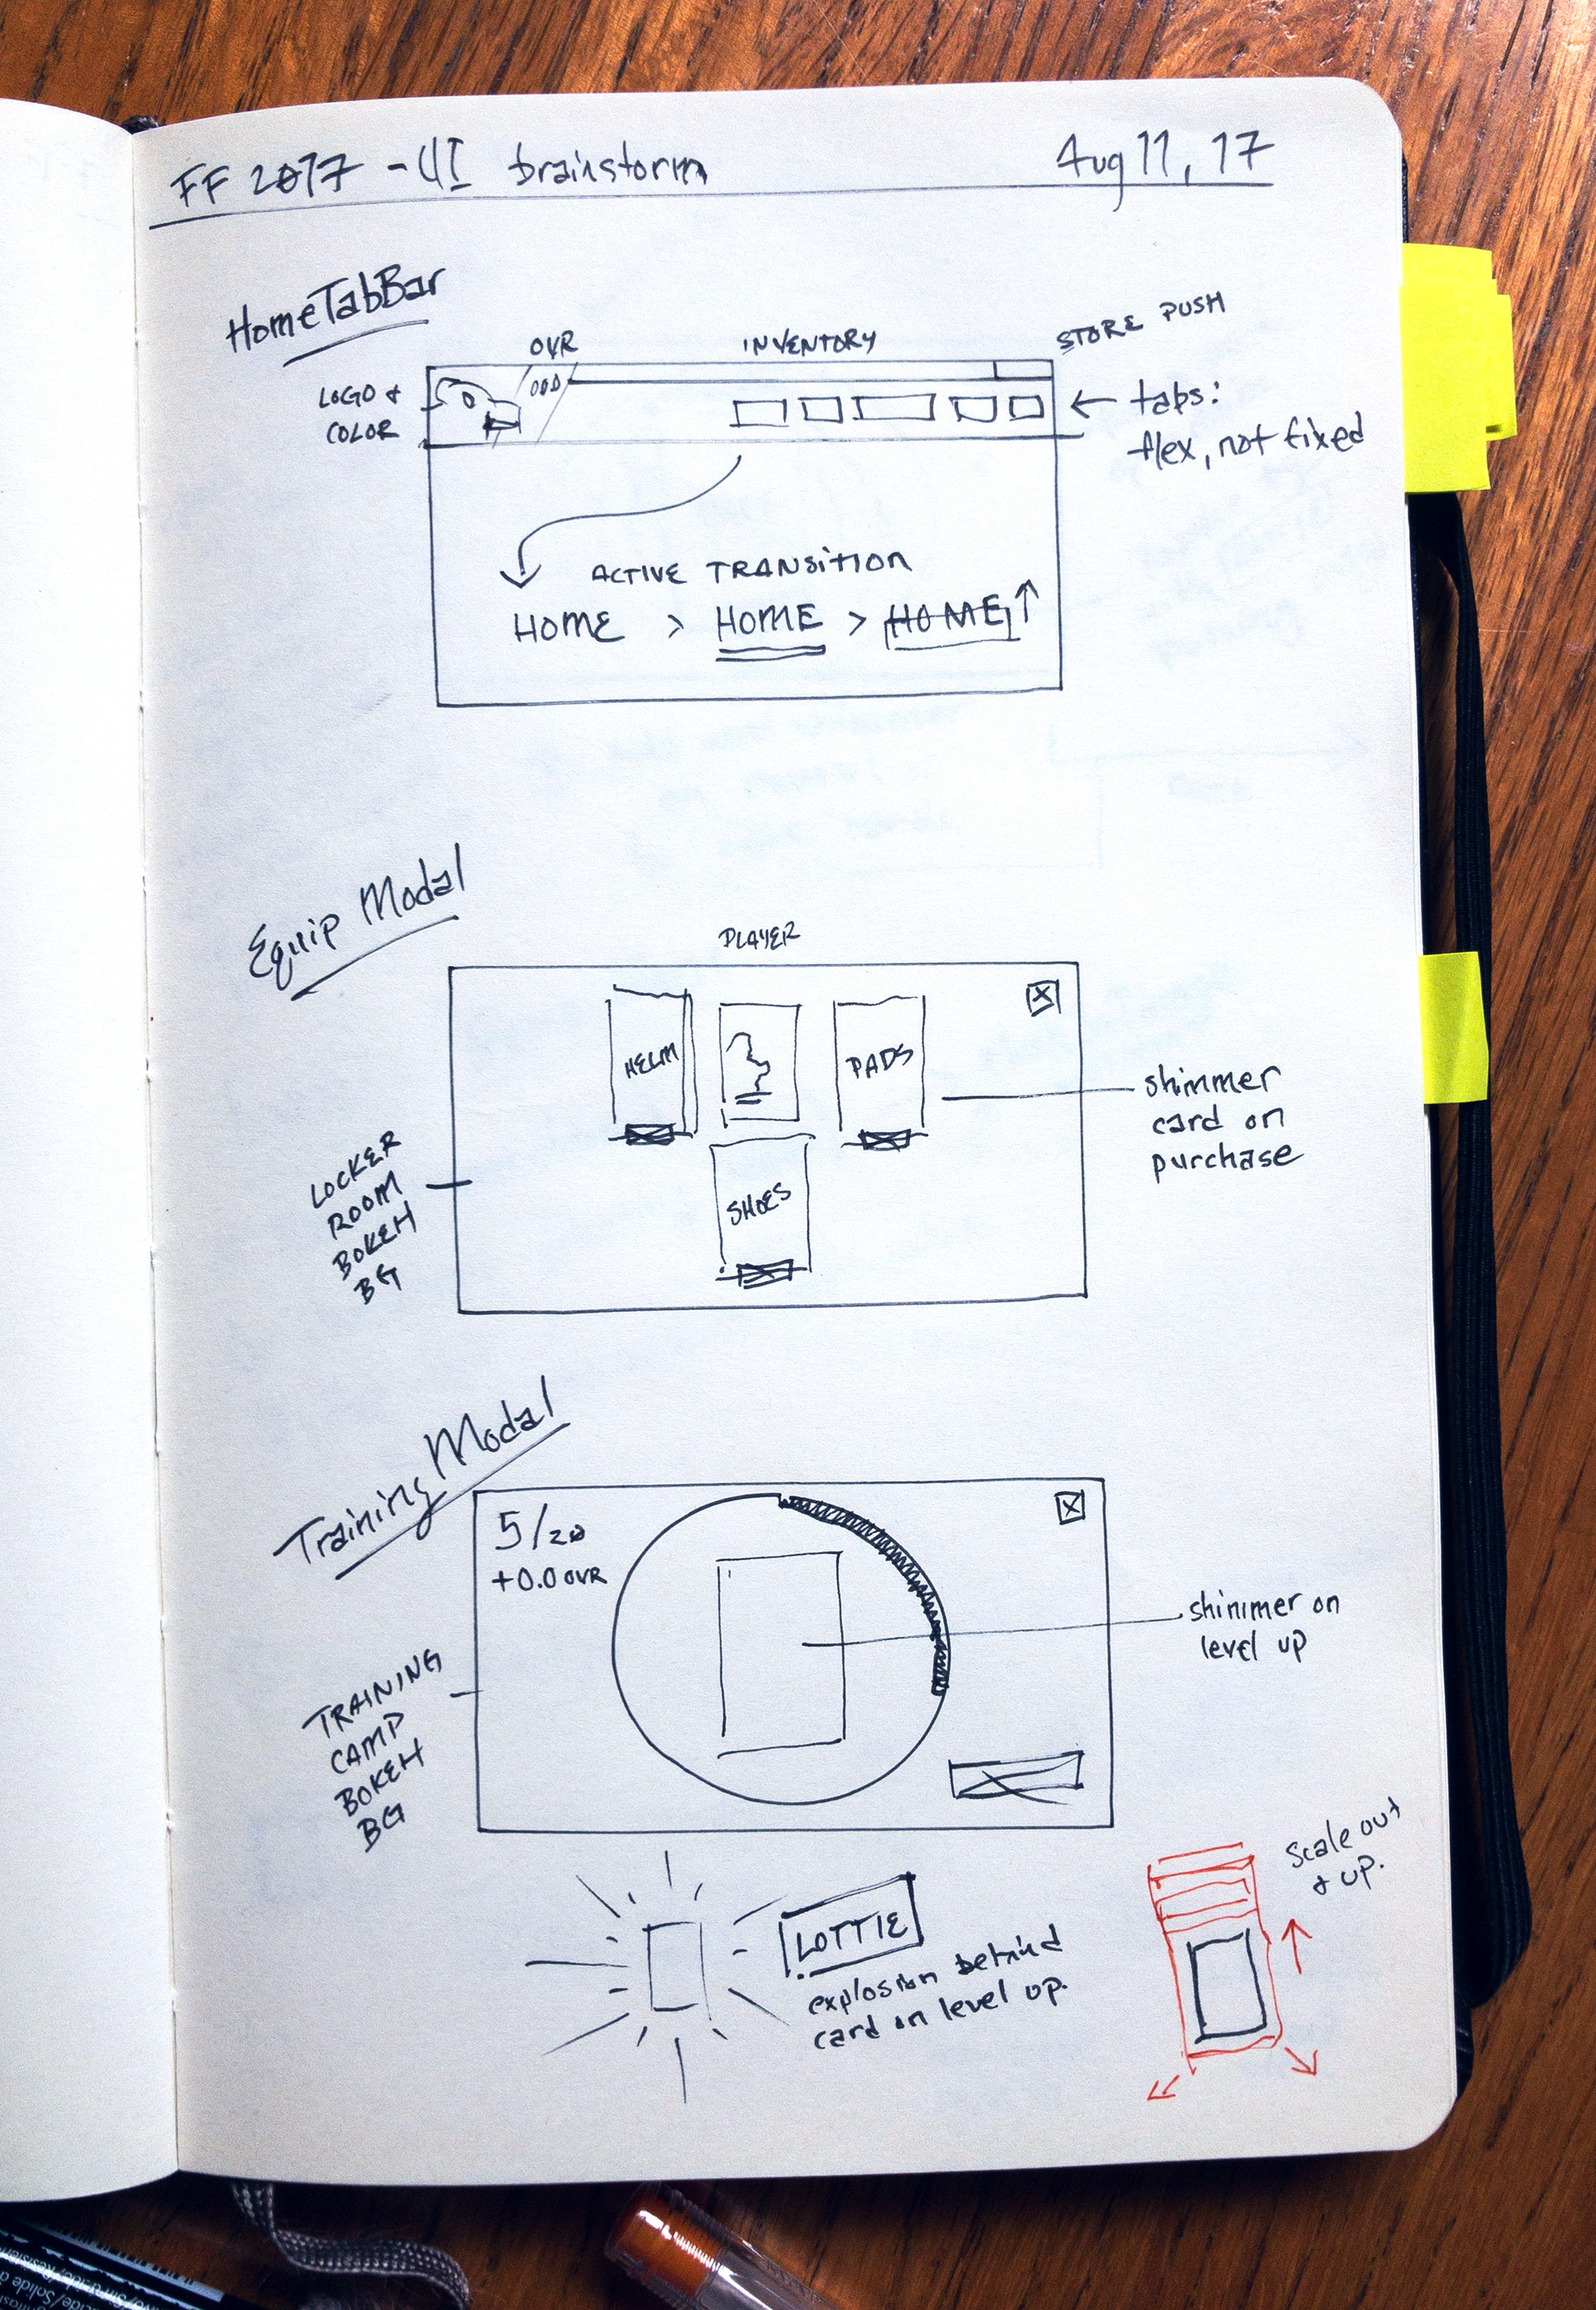 FF 2017 - UI brainstorm
Aug 11, 17
HomeTabBar
OVR
INVENTORY
STORE PUSH
LOGO +
COLOR
000
← tabs:
flex, not fixed
ACTIVE TRANSITION
HOME > HOME > HOME ↑
Equip Modal
PLAYER
HELM
PADS
X
shimmer
card on
purchase
SHOES
LOCKER
ROOM
BOKEH
BG
Training Modal
5/20
+0.0 OVR
X
shimmer on
level up
TRAINING
CAMP
BOKEH
BG
LOTTIE
explosion behind
card on level up.
Scale out
+ up.